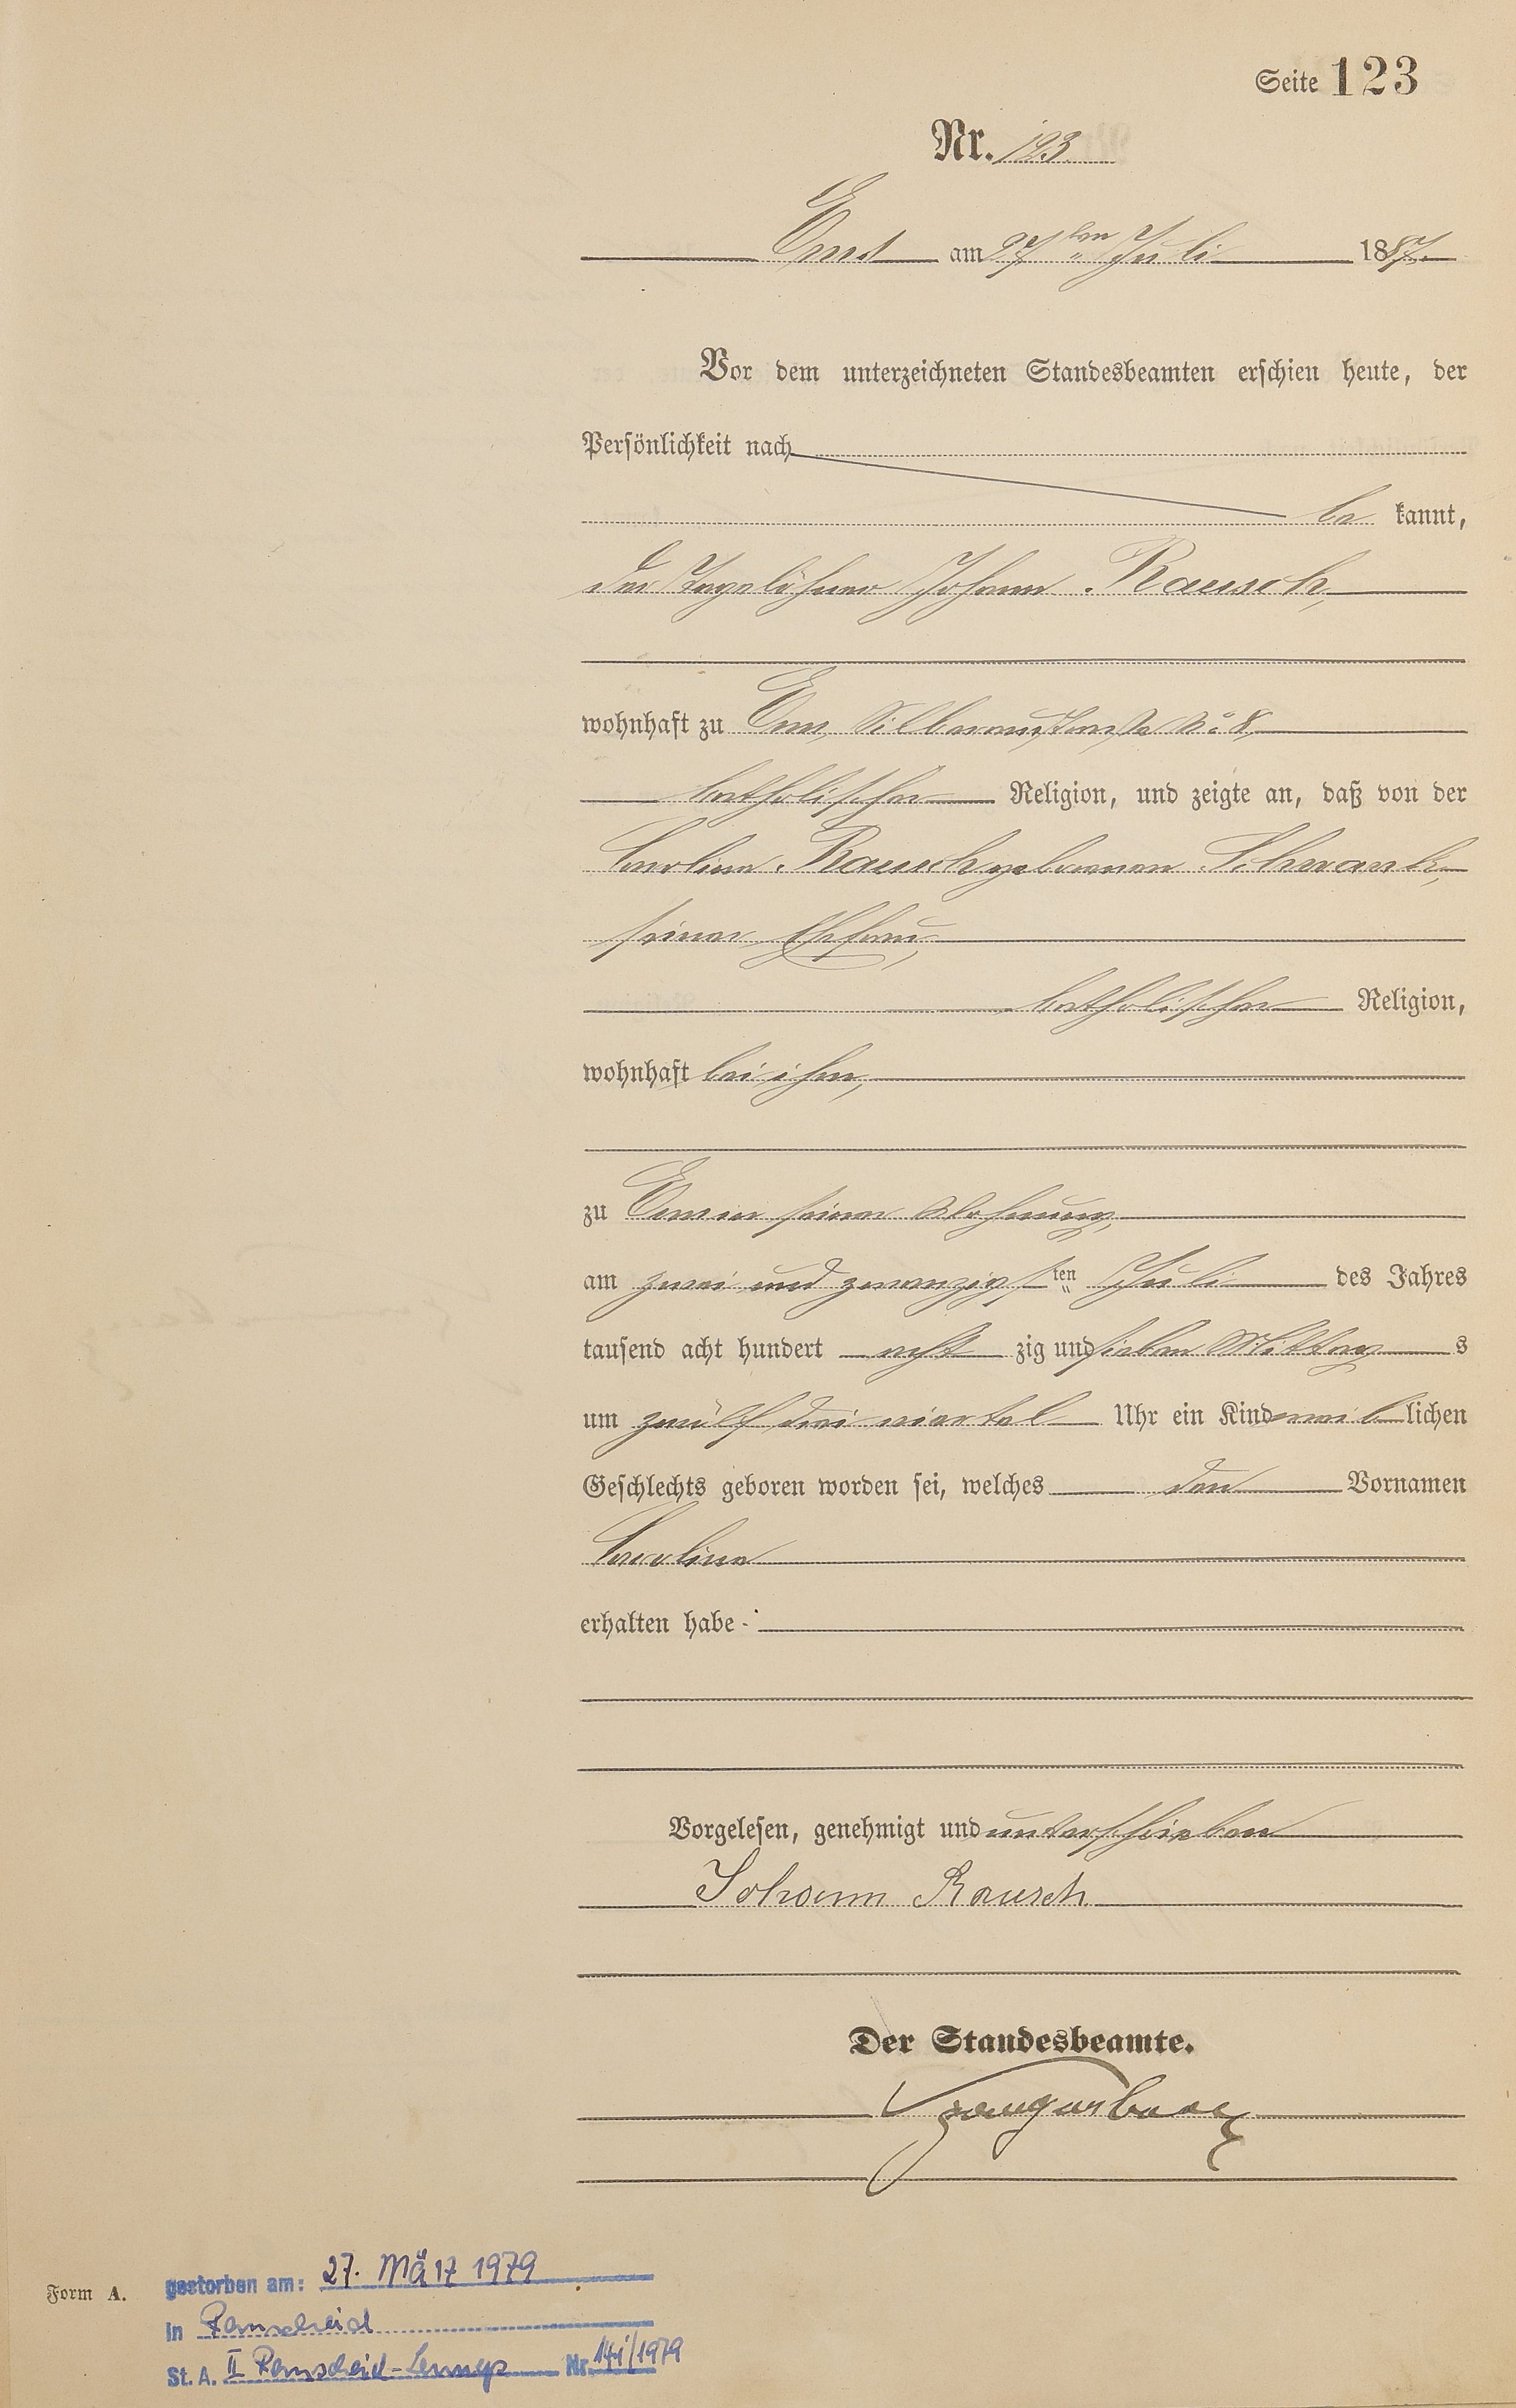 Seite 123
Nr. 123
Ems am 27ten Juli 1887.
Vor dem unterzeichneten Standesbeamten erschien heute, der
Persönlichkeit nach
be kannt,
der Tagelöhner Johann Rausch,
wohnhaft zu Ems, Silberaustraße No 8,
katholischer Religion, und zeigte an, daß von der
Caroline Rausch geborenen Schwank,
seiner Ehefrau,
katholischer Religion,
wohnhaft bei ihm,
zu Ems in seiner Wohnung,
am zwei und zwanzigsten Juli des Jahres
tausend acht hundert acht zig und sieben Mittags
um zwölf drei viertel Uhr ein Kind weiblichen
Geschlechts geboren worden sei, welches den Vornamen
Caroline
erhalten habe
Vorgelesen, genehmigt und unterschrieben
Johann Rausch
Der Standesbeamte.
Form A.
gestorben am: 27. März 1979
in Remscheid
St. A. II Remscheid-Lennep Nr. /1979